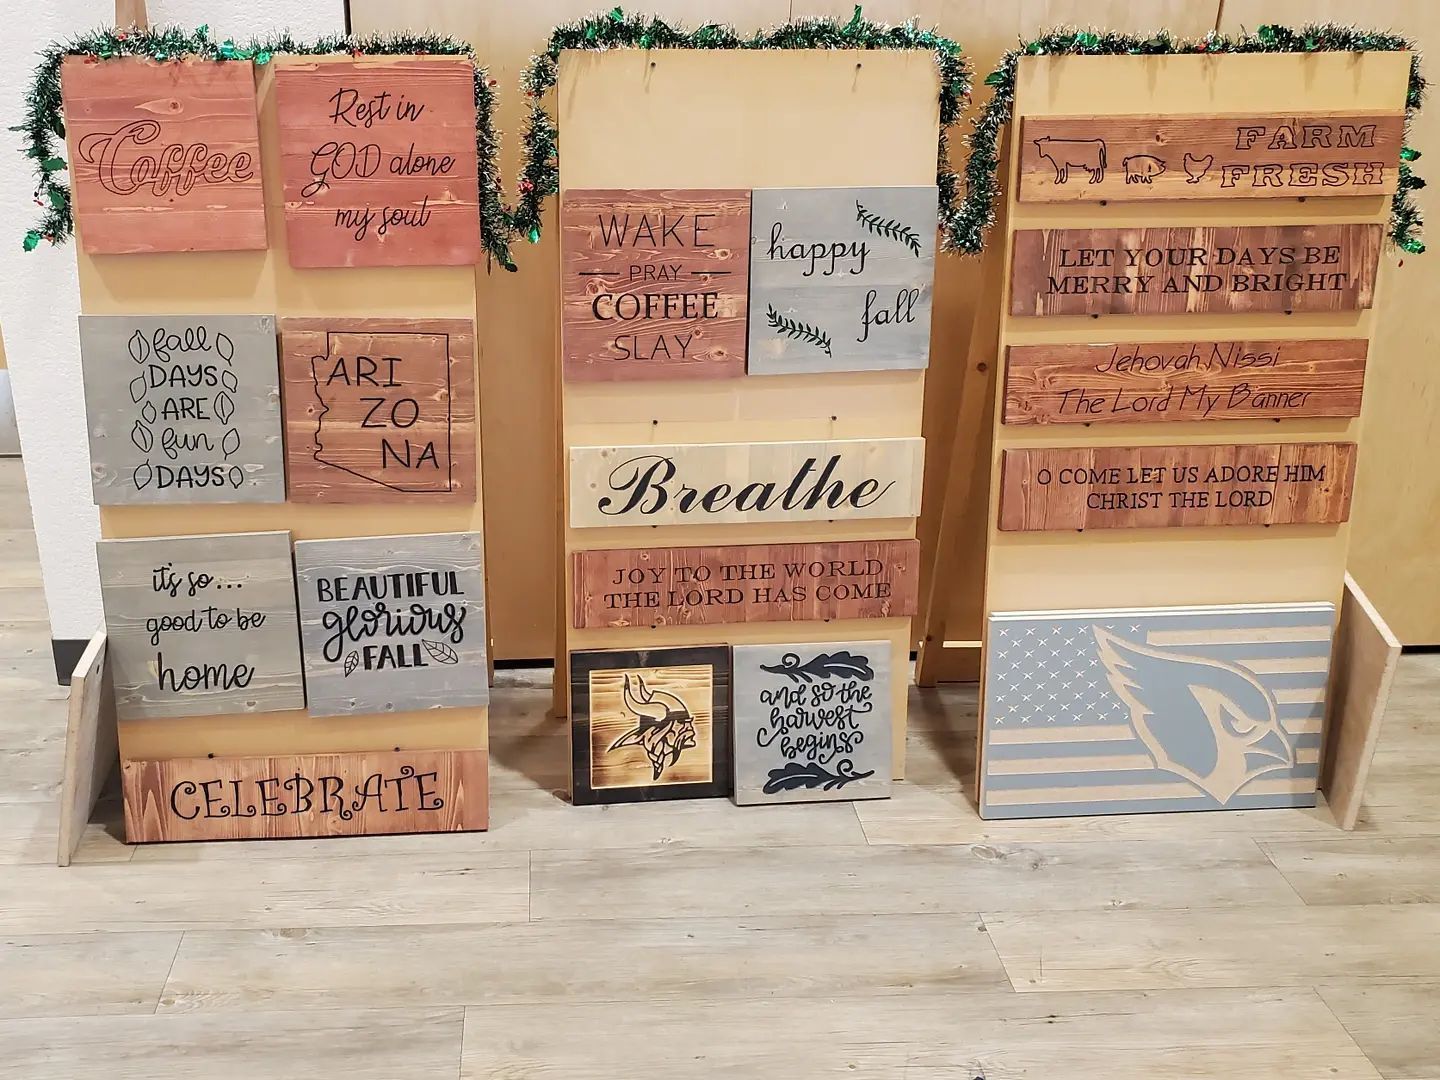 Coffee
Rest in
GOD alone
my soul
fall
DAYS
ARE
fun
DAYS
ARI
ZO
NA
it's so...
good to be
home
BEAUTIFUL
glorious
FALL
CELEBRATE
WAKE
PRAY
COFFEE
SLAY
happy
fall
Breathe
JOY TO THE WORLD
THE LORD HAS COME
and so the
harvest
begins
FARM
FRESH
LET YOUR DAYS BE
MERRY AND BRIGHT
Jehovah Nissi
The Lord My Banner
O COME LET US ADORE HIM
CHRIST THE LORD